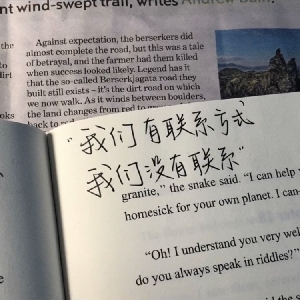 nt wind-swept trail, writes Andrew Bain.
Against expectation, the berserkers did
almost complete the road, but this was a tale
of betrayal, and the farmer had them killed
when success looked likely. Legend has it
that the so-called Berserkjagata road they
built still exists – it's the dirt road on which
we now walk. As it winds between boulders,
the land changes from red to
back to
the
to
dirt
ooks
"我们有联系方式
我们没有联系"
granite," the snake said. "I can help
homesick for your own planet. I can
"Oh! I understand you very wel
do you always speak in riddles?"
said the s
e